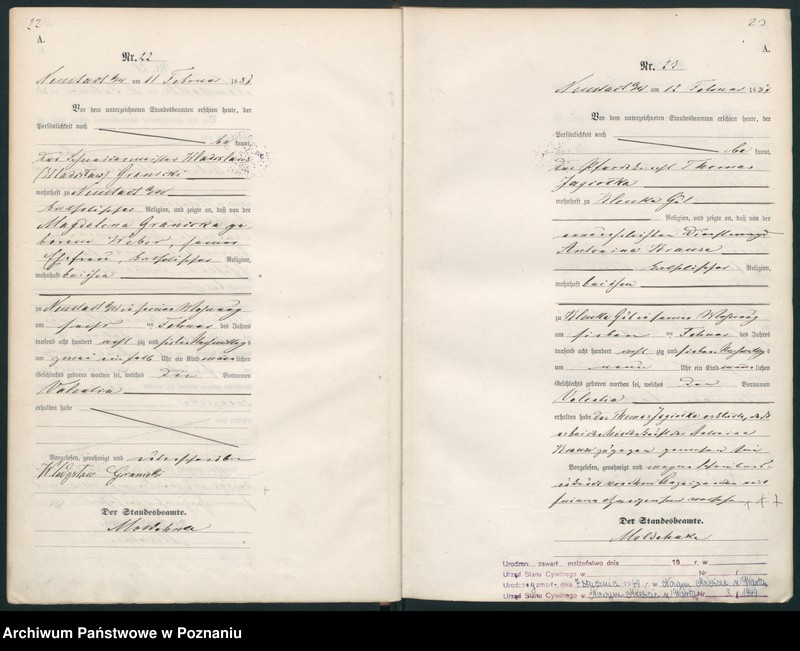 22
A.
Nr. 22
Neustadt a/W am 11 Februar 1887
Vor dem unterzeichneten Standesbeamten erschien heute, der
Persönlichkeit nach
be kannt,
der Schneidermeister Wladislaus
(Wladislaw) Granicki
wohnhaft zu Neustadt a/W
katholischer Religion, und zeigte an, daß von der
Magdalena Granicka ge
borenen Weber, seiner
Ehefrau, katholischer Religion,
wohnhaft bei ihm
zu Neustadt a/W in seiner Wohnung
am ten Februar des Jahres
tausend acht hundert acht zig und sieben Nachmittags
um zwei ein halb Uhr ein Kind männlichen
Geschlechts geboren worden sei, welches den Vornamen
erhalten habe
Vorgelesen, genehmigt und unterschrieben
Granicki
Der Standesbeamte.
23
A.
Nr. 23
Neustadt a/W am 12 Februar 1887
Vor dem unterzeichneten Standesbeamten erschien heute, der
Persönlichkeit nach
be kannt,
der Pferdeknecht Thomas
wohnhaft zu Gut
Religion, und zeigte an, daß von der
unverehelichten Dienstmagd
Antonina Krause
katholischer Religion,
wohnhaft bei ihm
zu Gut in seiner Wohnung
am sieben ten Februar des Jahres
tausend acht hundert acht zig und sieben Nachmittags
um neun Uhr ein Kind männlichen
Geschlechts geboren worden sei, welches den Vornamen
erhalten habe der Thomas erklärte, daß
er bei der Niederkunft der Antonina
Krause zugegen gewesen sei
Vorgelesen, genehmigt und wegen Schreibens
+ + +
Der Standesbeamte.
Urodzon... zawarł... małżeństwo dnia 19 r. w
Urząd Stanu Cywilnego w Nr /
Urodzon zmarł dnia 7 stycznia 1949 r. w Nowym Mieście n/Wartą
Urząd Stanu Cywilnego w Nowym Mieście n/Wartą Nr 3 / 1949
Archiwum Państwowe w Poznaniu